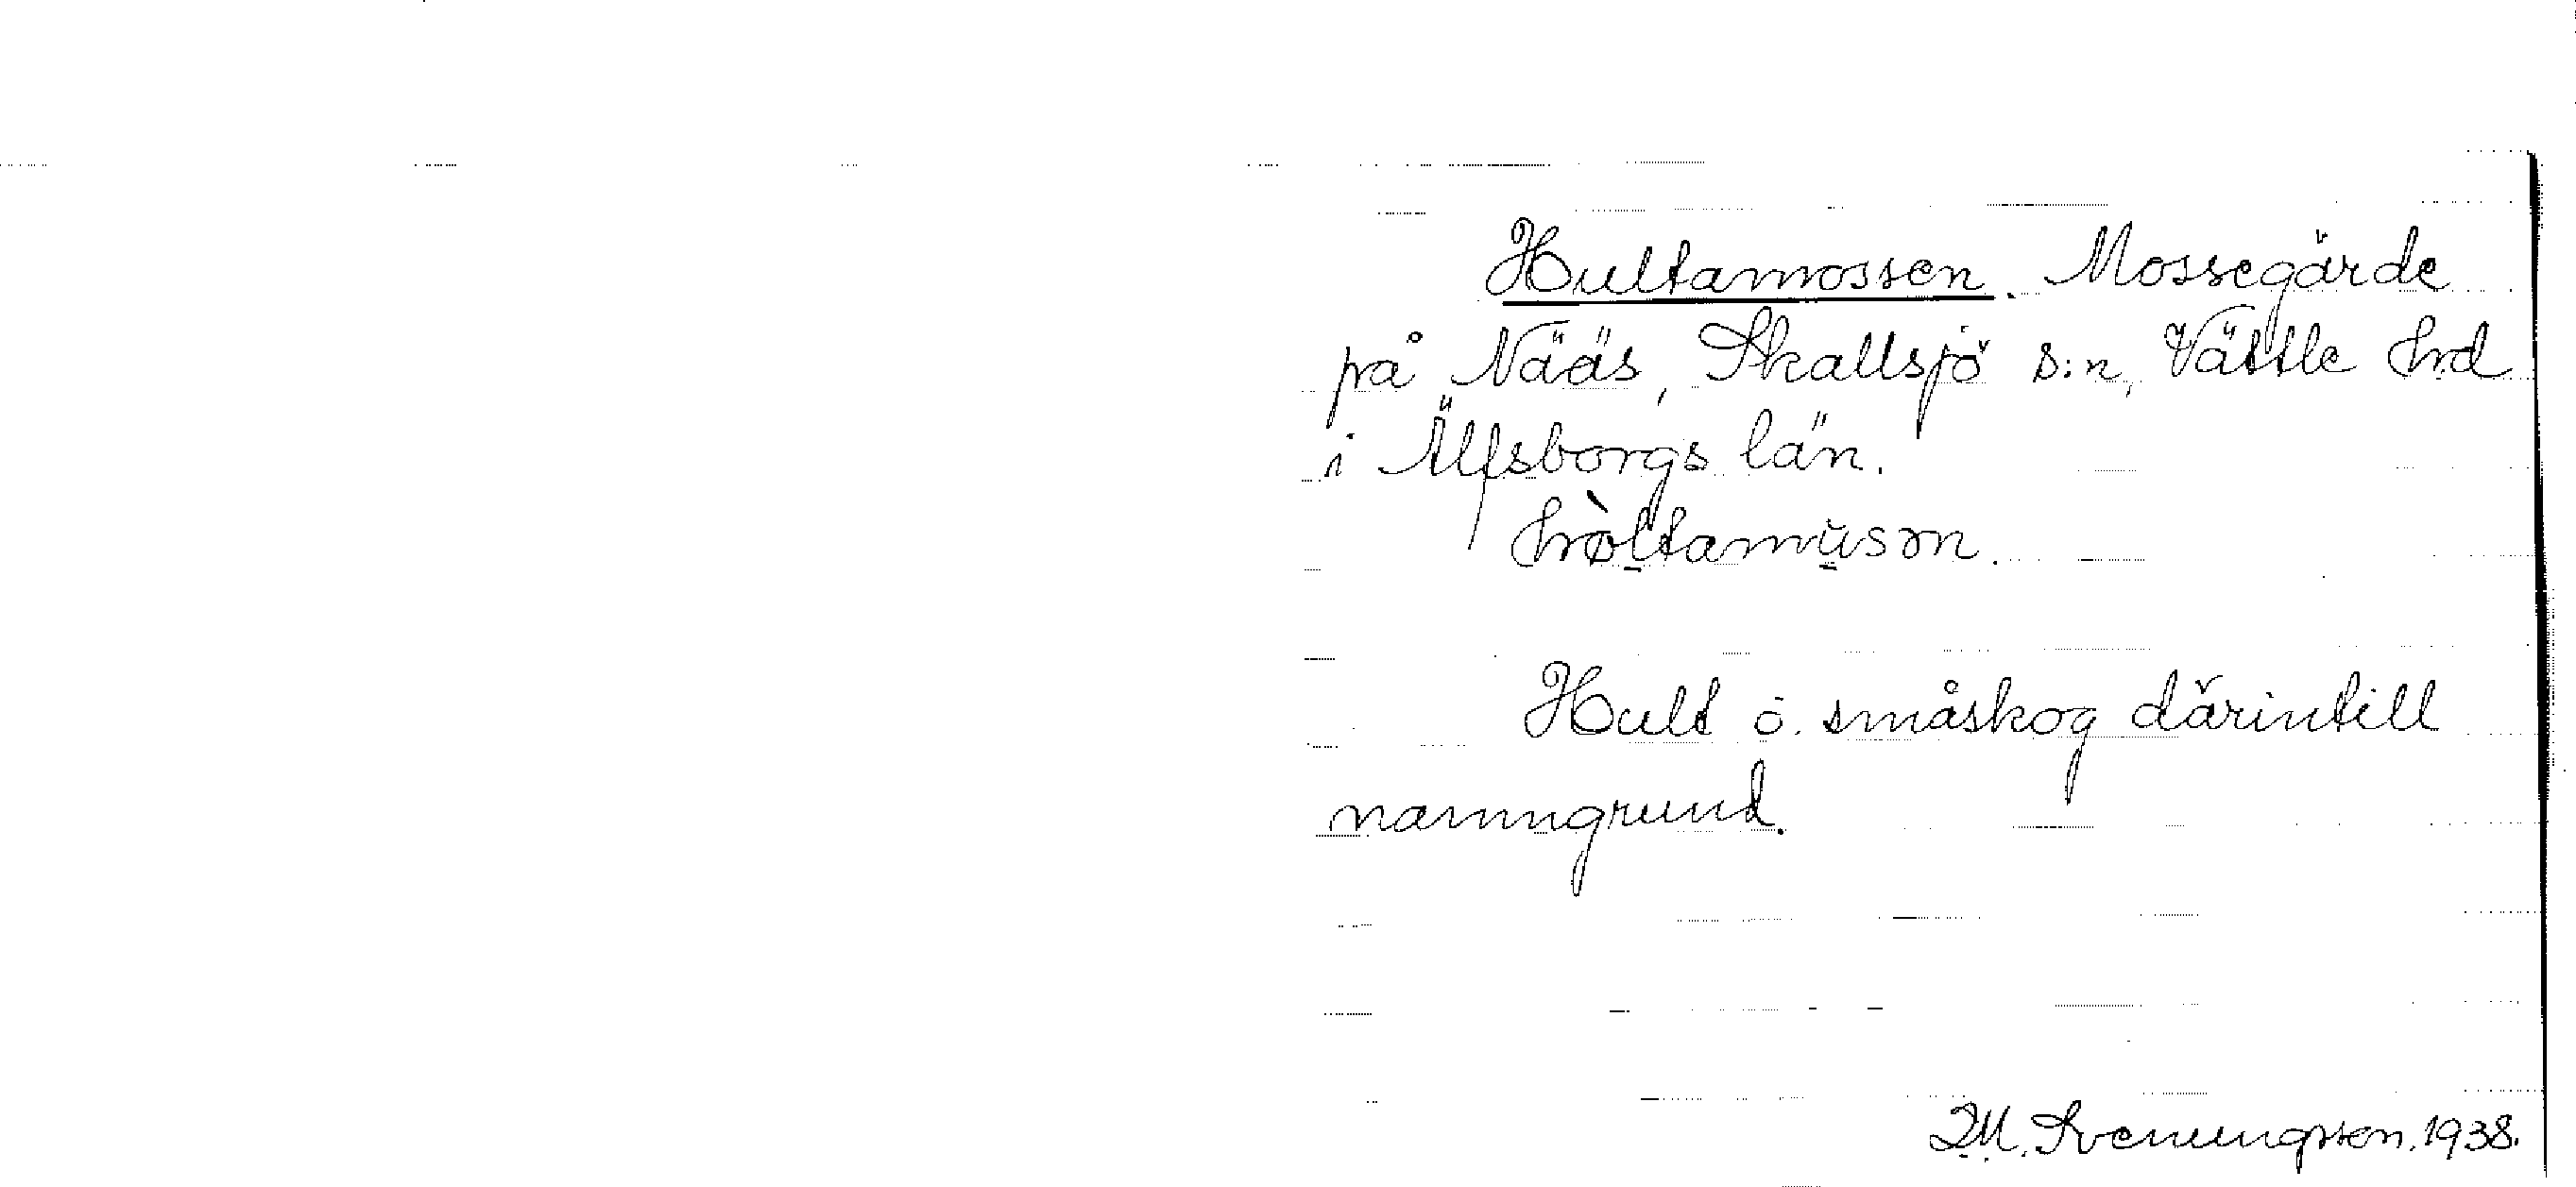 Hultamossen. Mossegärde
på Nääs, Skallsjö s:n, Vättle hd
i Älfsborgs län.
hòltamusən.
Hult o. småskog därintill
namngrund.
I.M. Svenungsson. 1938.